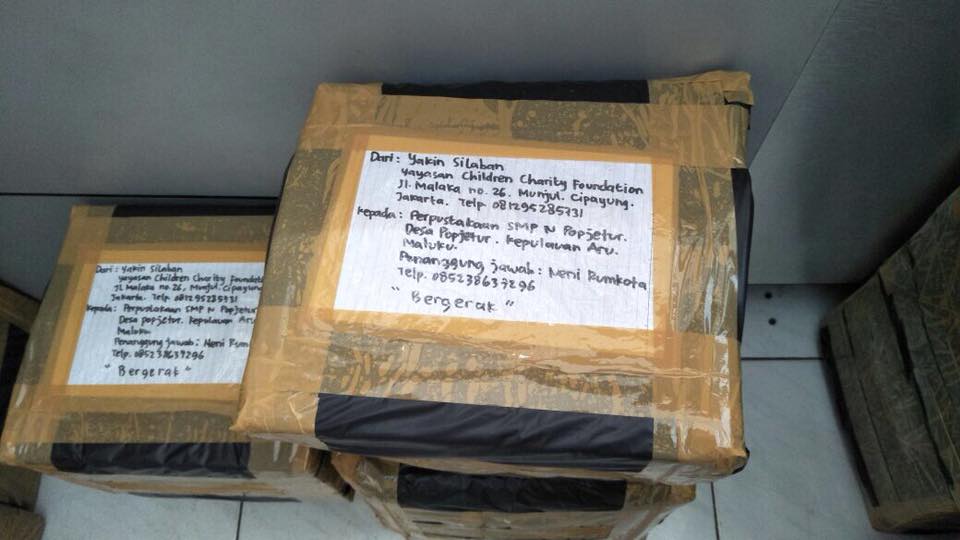 Dari: Yakin Silaban
Yayasan Children Charity Foundation
Jl. Malaka no. 26. Munjul. Cipayung.
Jakarta. Telp 081295285731
Kepada: Perpustakaan SMP N Popjetur.
Desa Popjetur. Kepulauan Aru.
Maluku.
Penanggung jawab: Neni Rumkota
Telp. 085238637296
"Bergerak"
Dari: Yakin Silaban
Yayasan Children Charity Foundat
Jl Malaka no 26, Munjul, Cipayung
Jakarta. Telp 081295285731
Kepada: Perpustakaan SMP N Popjetur
Desa popjetur. Kepulauan Aru
Maluku
Penanggung jawab: Neni Rum
Telp. 085238637296
"Bergerak"